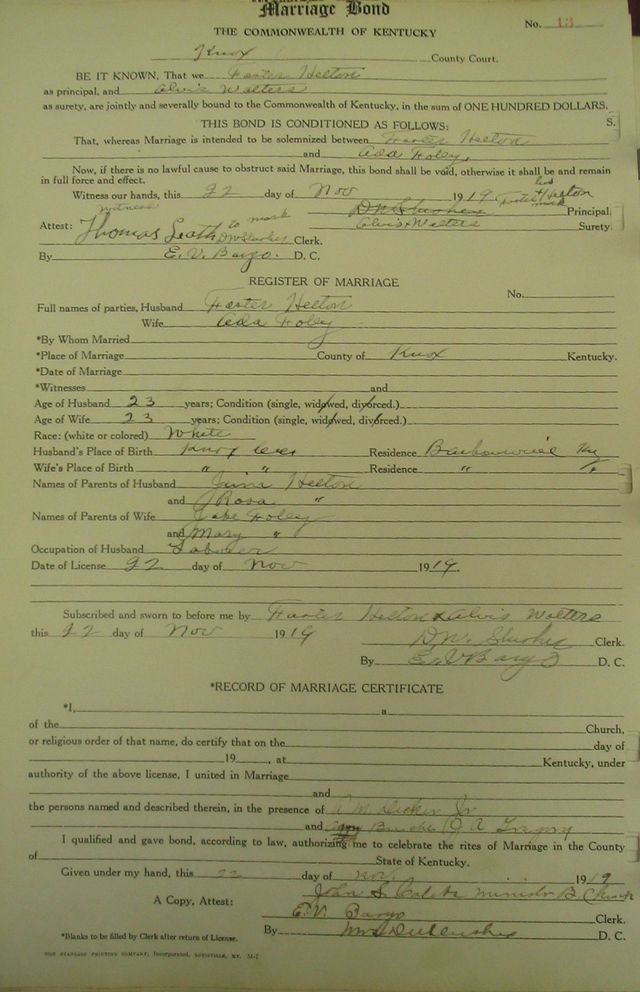 Marriage Bond
THE COMMONWEALTH OF KENTUCKY
No. 13
Knox County Court.
BE IT KNOWN, That we Foster Helton
as principal, and Alvis Walters
as surety, are jointly and severally bound to the Commonwealth of Kentucky, in the sum of ONE HUNDRED DOLLARS.
THIS BOND IS CONDITIONED AS FOLLOWS: S.
That, whereas Marriage is intended to be solemnized between Foster Helton
and Ada Foley,
Now, if there is no lawful cause to obstruct said Marriage, this bond shall be void, otherwise it shall be and remain
in full force and effect.
Witness our hands, this 22 day of Nov 1919 his
Foster + Helton
mark Principal
witness to mark
Attest: Thomas Clerk. Alvis Walters Surety
By E. V. Bargo. D. C.
REGISTER OF MARRIAGE
No.
Full names of parties, Husband Foster Helton
Wife Ada Foley
*By Whom Married
*Place of Marriage County of Knox Kentucky.
*Date of Marriage
*Witnesses and
Age of Husband 23 years; Condition (single, widowed, divorced.)
Age of Wife 23 years; Condition (single, widowed, divorced.)
Race: (white or colored) White
Husband's Place of Birth Knox Residence Barbourville Ky
Wife's Place of Birth " " Residence "
Names of Parents of Husband Helton
and Rosa "
Names of Parents of Wife Jake Foley
and Mary "
Occupation of Husband Laborer
Date of License 22 day of Nov 1919.
Subscribed and sworn to before me by Foster Helton & Alvis Walters
this 22 day of Nov 1919 D. W. Clerk.
By E. V. Bargo D. C.
*RECORD OF MARRIAGE CERTIFICATE
*I, a
of the Church,
or religious order of that name, do certify that on the day of
19 , at Kentucky, under
authority of the above license, I united in Marriage
and
the persons named and described therein, in the presence of M. Jr
and
I qualified and gave bond, according to law, authorizing me to celebrate the rites of Marriage in the County
of State of Kentucky.
Given under my hand, this 22 day of Nov. 1919
John S. B. Church
A Copy, Attest: E. V. Bargo Clerk.
By D. C.
*Blanks to be filled by Clerk after return of License.
THE STANDARD PRINTING COMPANY, Incorporated, LOUISVILLE, KY.